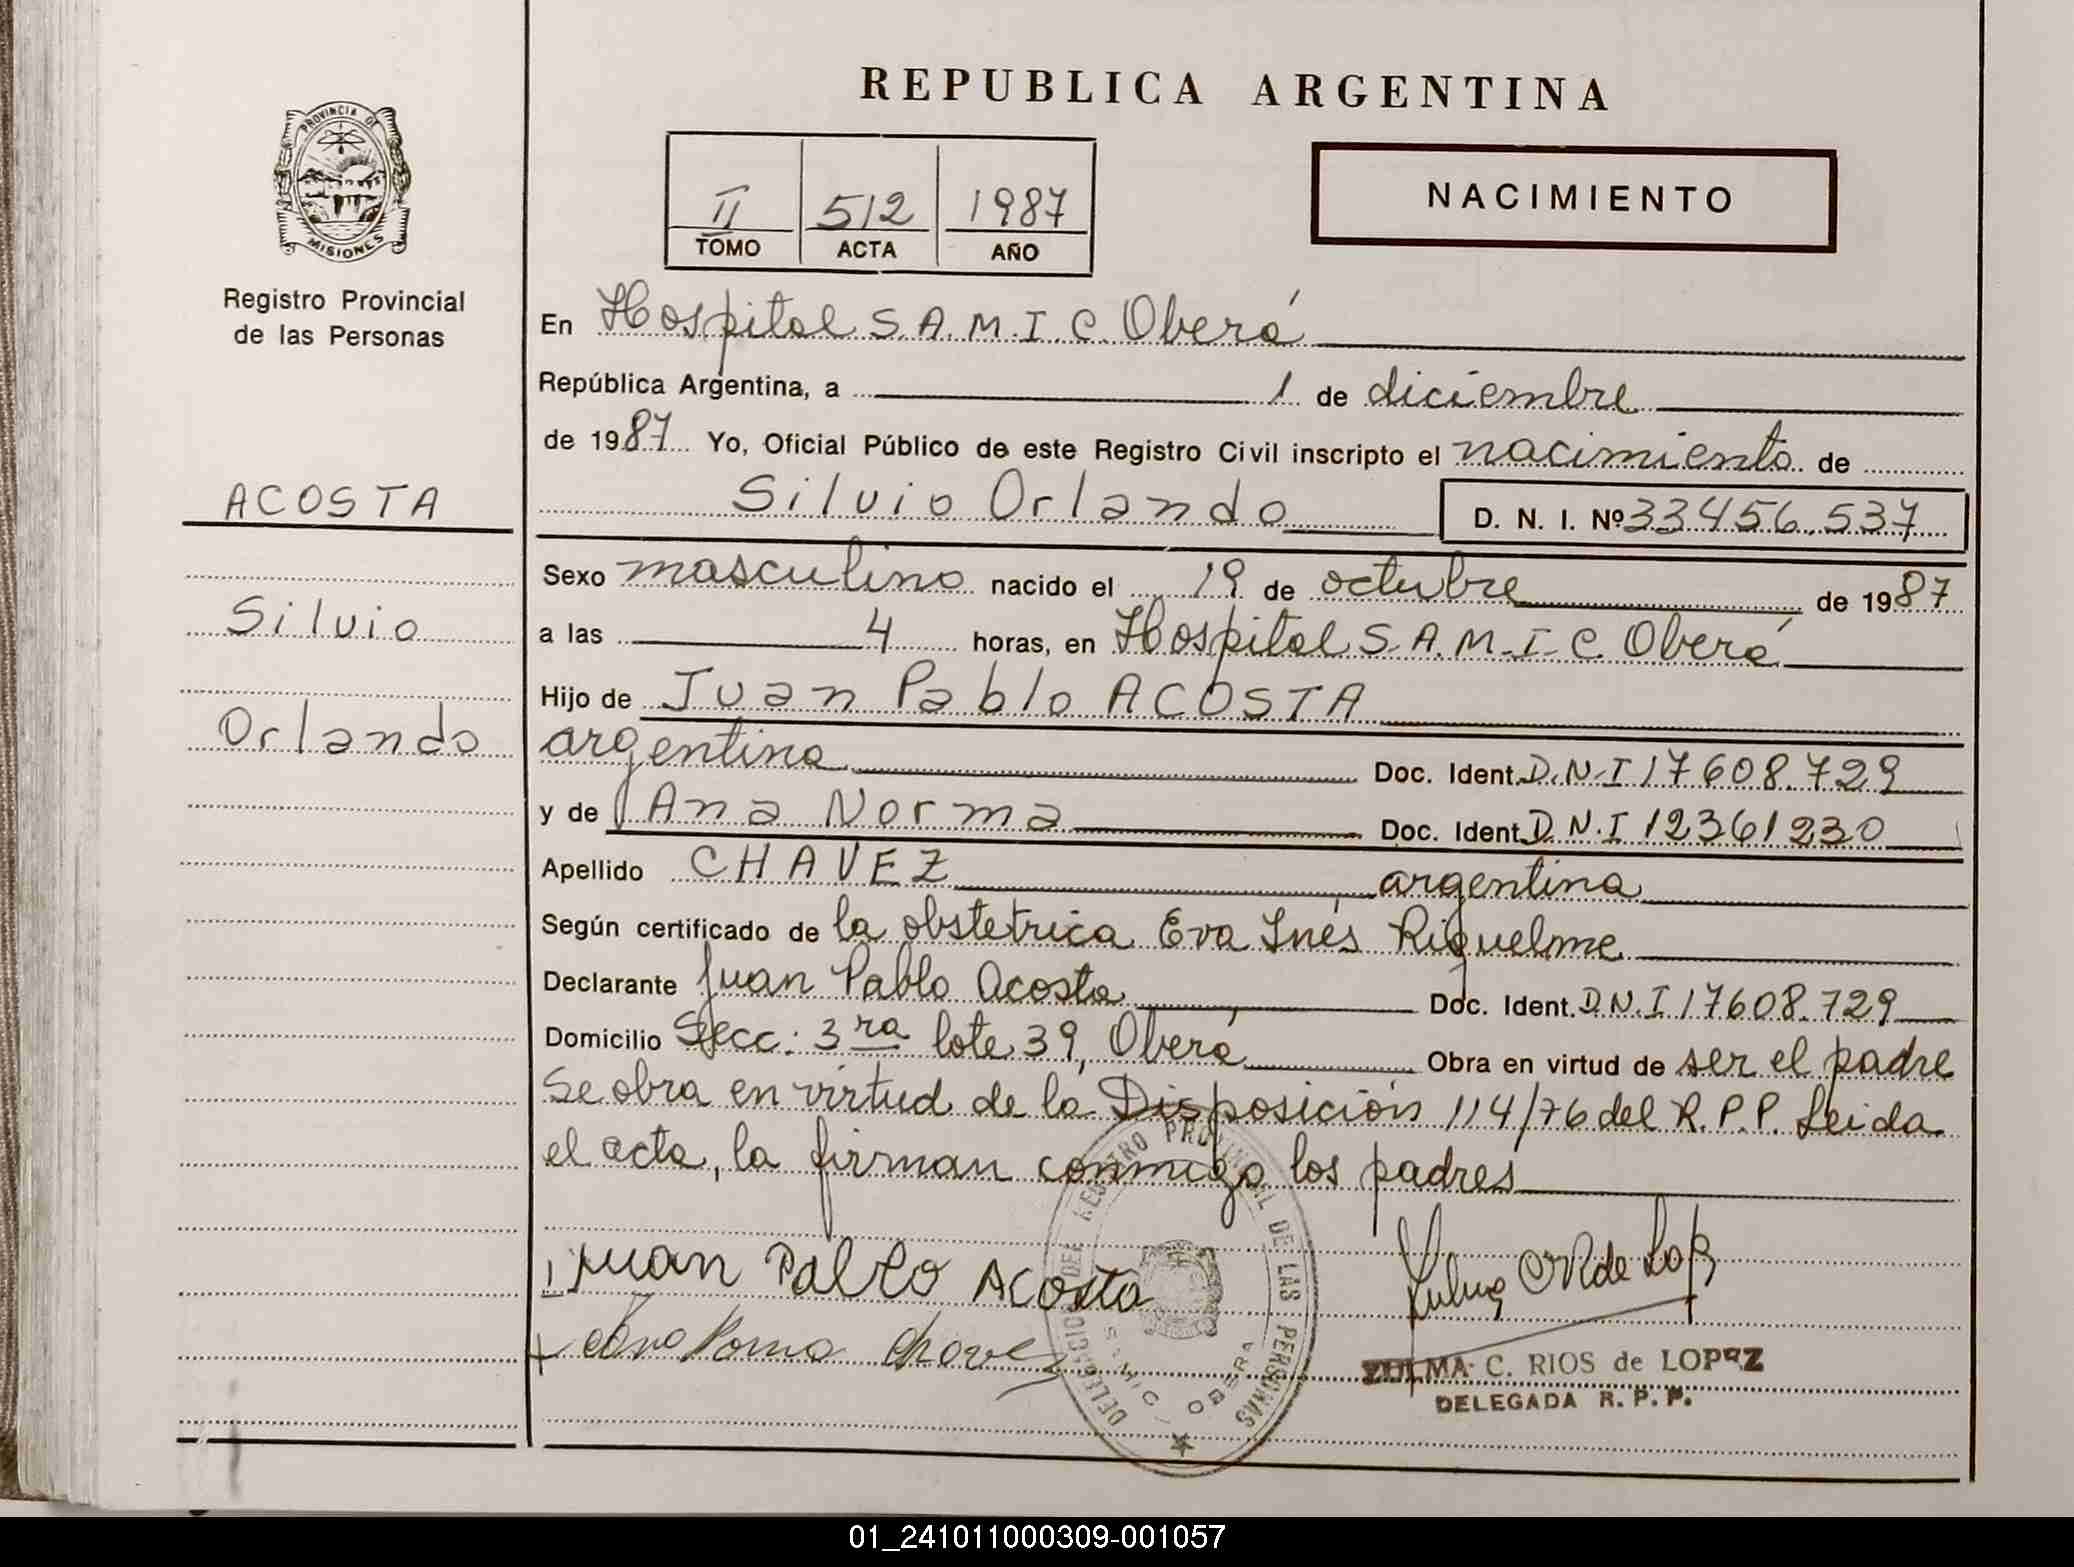 REPUBLICA ARGENTINA
PROVINCIA DE
MISIONES
Registro Provincial
de las Personas
II 512 1987
TOMO ACTA AÑO
NACIMIENTO
ACOSTA
Silvio
Orlando
En Hospital S.A.M.I.C. Oberá
República Argentina, a 1 de diciembre
de 1987 Yo, Oficial Público de este Registro Civil inscripto el nacimiento de
Silvio Orlando D. N. I. Nº 33456.537
Sexo masculino nacido el 19 de octubre de 1987
a las 4 horas, en Hospital S.A.M.I.C. Oberá
Hijo de Juan Pablo ACOSTA
argentina Doc. Ident. D.N.I 17608.729
y de Ana Norma Doc. Ident. D.N.I 12361230
Apellido CHAVEZ argentina
Según certificado de la obstetrica Eva Inés Riquelme
Declarante Juan Pablo Acosta Doc. Ident. D.N.I 17608.729
Domicilio Secc: 3ra lote 39, Oberá Obra en virtud de ser el padre
Se obra en virtud de la Disposición 114/76 del R.P.P. Leida
el acta, la firman conmigo los padres
Juan Pablo Acosta
Ana Norma Chavez
DELEGACION DEL REGISTRO PROVINCIAL DE LAS PERSONAS
SAMIC OBERA
ZULMA C. RIOS de LOPEZ
DELEGADA R. P. P.
01_241011000309-001057